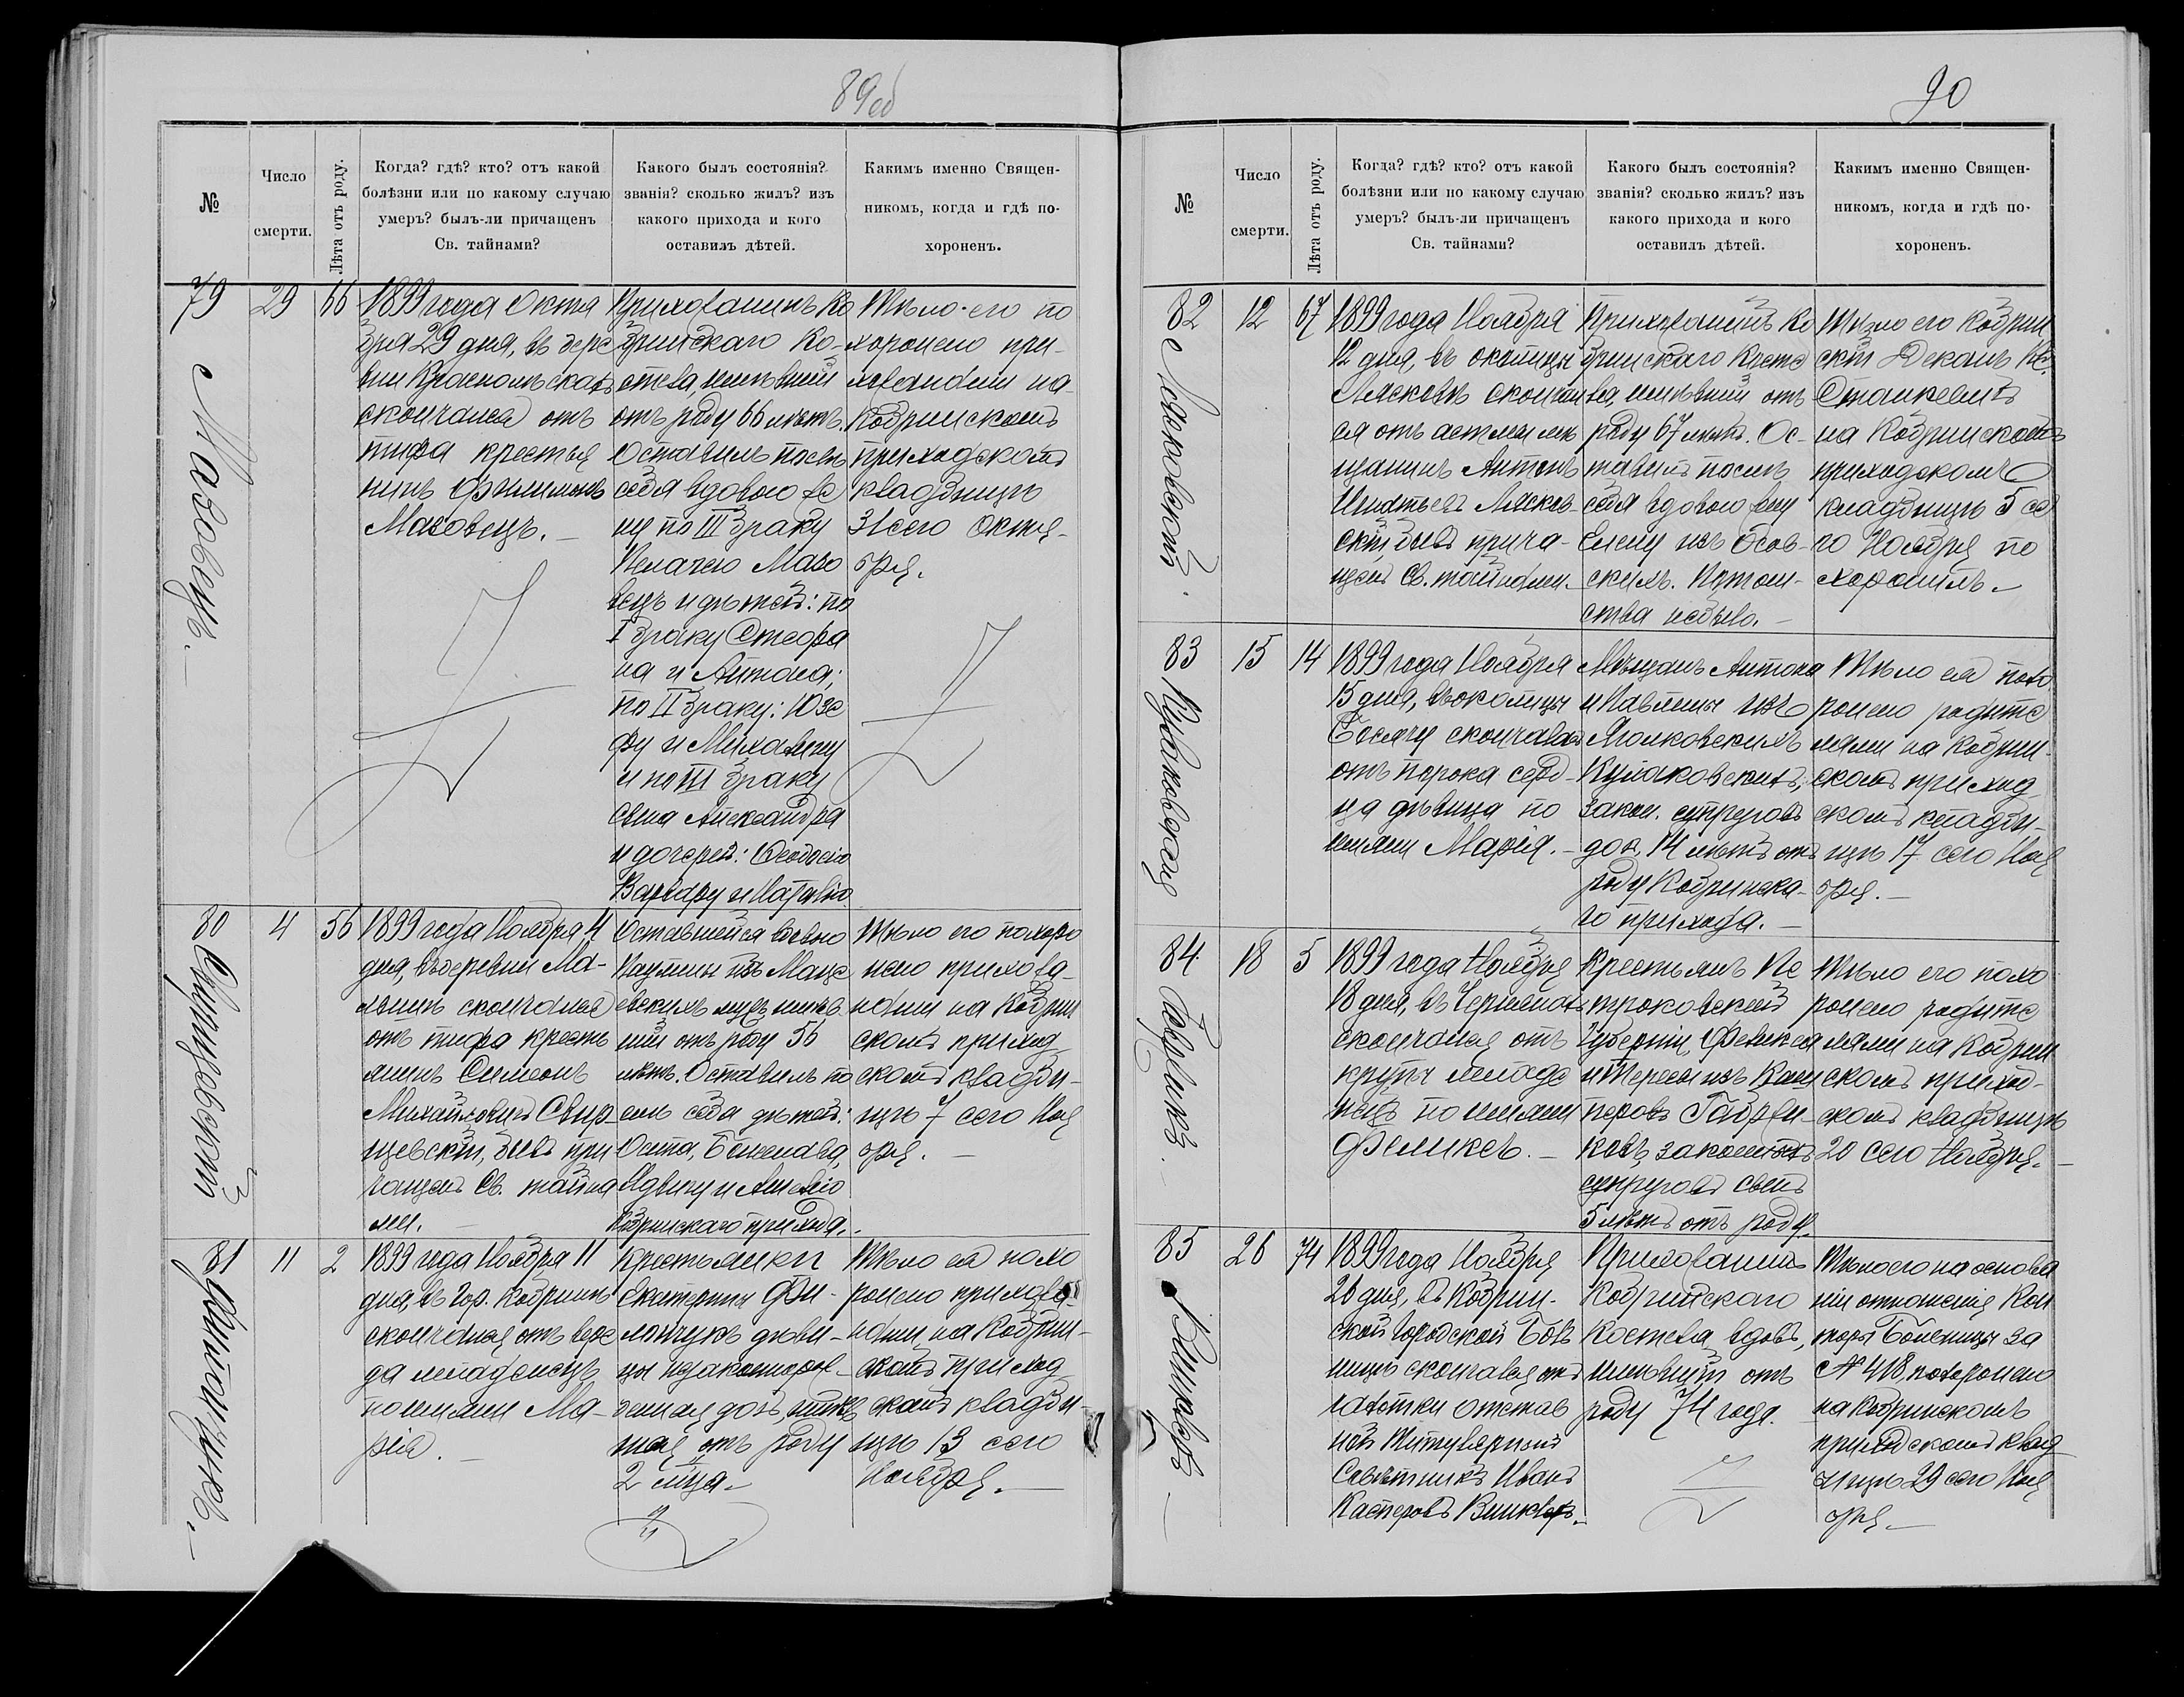 89об
№
Число
смерти.
Лѣта отъ роду.
Когда? гдѣ? кто? отъ какой
болѣзни или по какому случаю
умеръ? былъ-ли причащенъ
Св. тайнами?
Какого былъ состоянія?
званія? сколько жилъ? изъ
какого прихода и кого
оставилъ дѣтей.
Каким именно Священ-
никомъ, когда и гдѣ по-
хороненъ.
79
Мазовецъ.
29
66
1899 года Октя
бря 29 дня, въ дере
вни
скончался отъ
тифа крестья
нинъ Филимонъ
Мазовецъ.
Прихожанинъ Ко
бринскаго Ко-
стела, имѣвшій
отъ роду 66 лѣтъ.
Оставилъ послѣ
себя вдовою же
ну по III браку
Пелагею Мазо
вецъ и дѣтей: по
I браку Стефа
на и Антона;
по II браку: Юзе
фу и Михалину
и по III браку
сына Александра
и дочерей: Феодосію
Варвару и Наталію
Тѣло его по
хоронено при-
хожанами на
Кобринскомъ
приходскомъ
кладбищѣ
31 сего Октя-
бря.
80
Свирщевскій
4
56
1899 года Ноября 4
дня, въ деревни Ма-
скончался
отъ тифа кресть
янинъ Симеонъ
Михайловичъ Свир-
щевскій, бывъ при
чащенъ Св. тайна
ми.
Оставшейся вдовою
Паулины изъ Маце
евскихъ мужъ имѣв
шій отъ роду 56
лѣтъ. Оставилъ по
слѣ себя дѣтей:
Осипа, Болеслава,
Ядвигу и Амелію
Кобринскаго прихода.
Тѣло его похоро
нено прихожа-
нами на Кобрин
скомъ приход
скомъ кладби-
щѣ 7 сего Ноя
бря.
81
Филипчукъ.
11
2
1899 года Ноября 11
дня, въ гор. Кобринѣ
скончалася отъ
младенецъ
по имяни Ма-
рія.
Крестьянки
Екатерины Фи-
липчукъ дѣви-
цы незаконорож-
денная дочь, имѣв
шая отъ роду
2 мца.
Тѣло ея похо
ронено прихожа-
нами на Кобрин-
скомъ приход
скомъ кладби-
щѣ 13 сего
Ноября.
90
№
Число
смерти.
Лѣта отъ роду.
Когда? гдѣ? кто? отъ какой
болѣзни или по какому случаю
умеръ? былъ-ли причащенъ
Св. тайнами?
Какого былъ состоянія?
званія? сколько жилъ? изъ
какого прихода и кого
оставилъ дѣтей.
Каким именно Священ-
никомъ, когда и гдѣ по-
хороненъ.
82
Лясковскій.
12
67
1899 года Ноября
12 дня, въ околицы
скончал
ся отъ астмы мѣ
щанинъ Антонъ
Игнатьевъ Лясков-
скій, бывъ прича-
щенъ Св. тайнами.
Прихожанинъ Ко
бринскаго Косте
ла, имѣвшій отъ
роду 67 лѣтъ. Ос-
тавилъ послѣ
себя вдовою жену
Елену изъ Осов-
скихъ. Потом-
ства небыло.
Тѣло его Кобрин
скій Деканъ Кс.
Станкевичъ
на Кобринскомъ
приходскомъ
кладбищѣ се
го Ноября по
хоронилъ.
83
Кулаковская
15
14
1899 года Ноября
15 дня, въ околицы
скончалась
отъ порока серд-
ца дѣвица по
имяни Марія.
Мѣщанъ Антона
и Павлины изъ
Ягелковскихъ
Кулаковскихъ,
закон. супруговъ
доч. 14 лѣтъ отъ
роду Кобринска-
го прихода.
Тѣло ея похо
ронено родите
лями на Кобрин-
скомъ приход
скомъ кладби-
щѣ 17 сего Ноя
бря.
84
Гаврикъ.
18
5
1899 года Ноября
18 дня, въ
скончался отъ
крупа младе
нецъ по имяни
Феликсъ.
Крестьянъ Пе
троковской
Губерніи, Феликса
и Терезы изъ
Гаври-
ковъ, законныхъ
супруговъ сынъ
5 лѣтъ отъ роду.
Тѣло его похо
ронено родите
лями на Кобрин
скомъ приход-
скомъ кладбищѣ
20 сего Ноября.
85
Винклеръ
26
74
1899 года Ноября
26 дня, въ Кобрин-
ской Городской Боль
ницѣ скончался отъ
чахотки отстав
ной Титулярный
Совѣтникъ Иванъ
Касперовъ Винклеръ.
Прихожанинъ
Кобринскаго
Костела, вдовъ,
имѣвшій отъ
роду 74 года.
Тѣло его на основа
ніи отношенія Кон
торы Больницы за
№ 418, похоронено
на Кобринскомъ
приходскомъ клад
бищѣ 29 сего Ноя
бря.